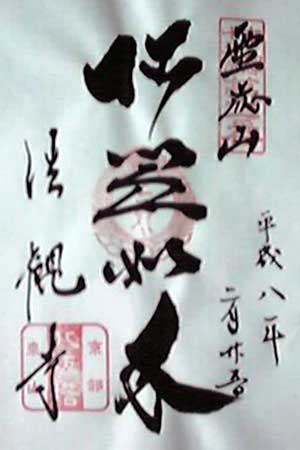 霊応山
平成八年
二月廿五日
五智如来
法観寺
京都
東山